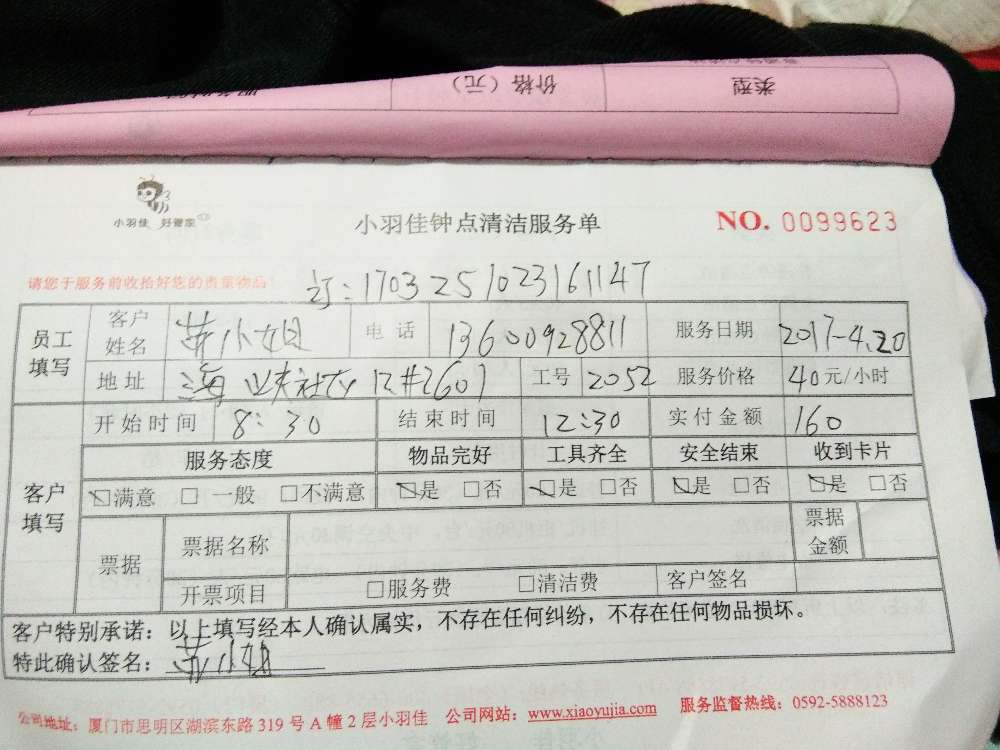 类型 价格（元）
小羽佳 好管家
小羽佳钟点清洁服务单 NO. 0099623
请您于服务前收拾好您的贵重物品！
订：170325102316 1147
员工填写 客户姓名 小姐 电话 13600928811 服务日期 2017-4.20
地址 海 社 12#2607 工号 2052 服务价格 40元/小时
开始时间 8:30 结束时间 12:30 实付金额 160
客户填写 服务态度 物品完好 工具齐全 安全结束 收到卡片
满意 □一般 □不满意 是 □否 是 □否 是 □否 是 □否
票据 票据名称 票据金额
开票项目 □服务费 □清洁费 客户签名
客户特别承诺：以上填写经本人确认属实，不存在任何纠纷，不存在任何物品损坏。
特此确认签名： 小姐
公司地址：厦门市思明区湖滨东路319号A幢2层小羽佳 公司网站：www.xiaoyujia.com 服务监督热线：0592-5888123